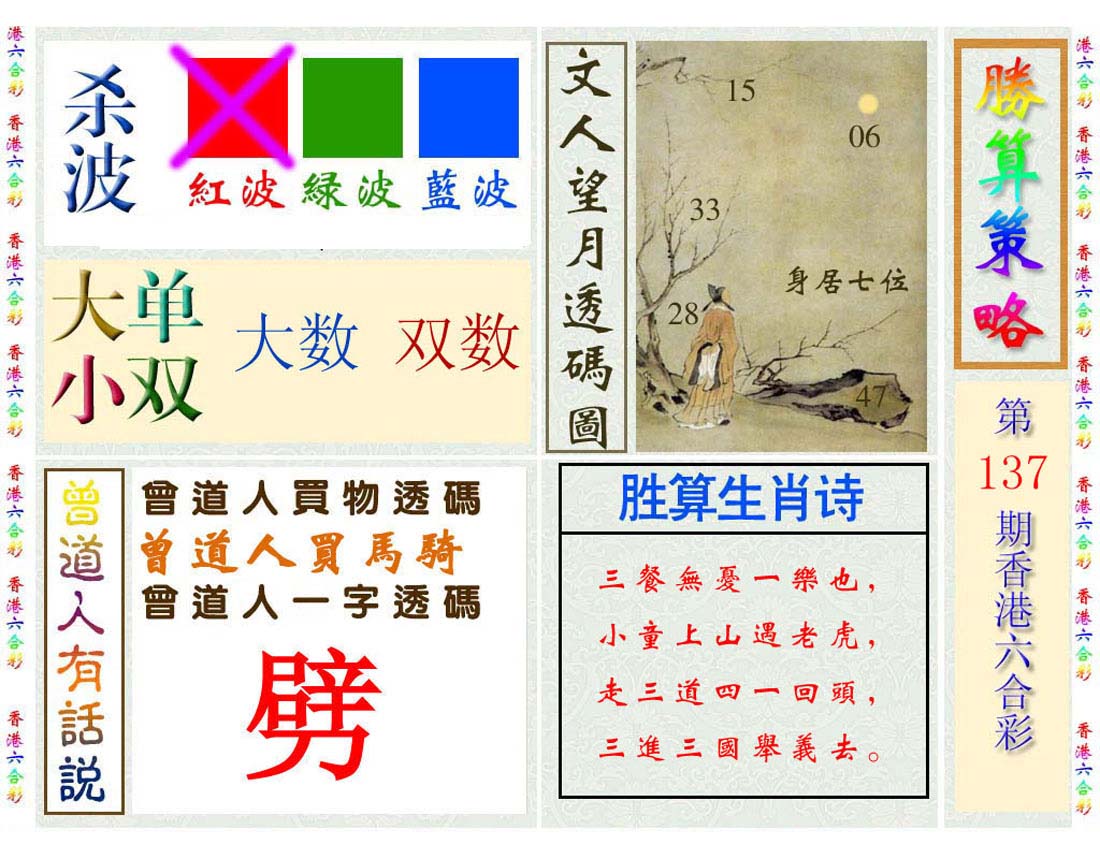 杀波
紅波 緑波 藍波
大单
小双
大数 双数
曾道人有話説
曾道人買物透碼
曾道人買馬騎
曾道人一字透碼
劈
文人望月透碼圖
15
06
33
身居七位
28
47
胜算生肖诗
三餐無憂一樂也，
小童上山遇老虎，
走三道四一回頭，
三進三國舉義去。
勝算策略
第137期香港六合彩
港六合彩 香港六合彩 香港六合彩 香港六合彩 香港六合彩 香港六合彩 香港六合彩
港六合彩 香港六合彩 香港六合彩 香港六合彩 香港六合彩 香港六合彩 香港六合彩